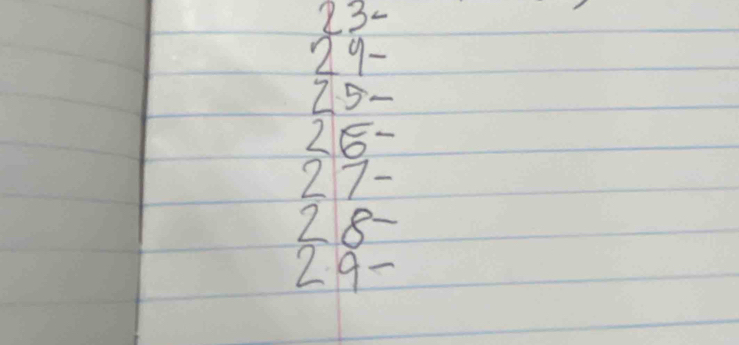 23-
24-
25-
26-
27-
28-
29-